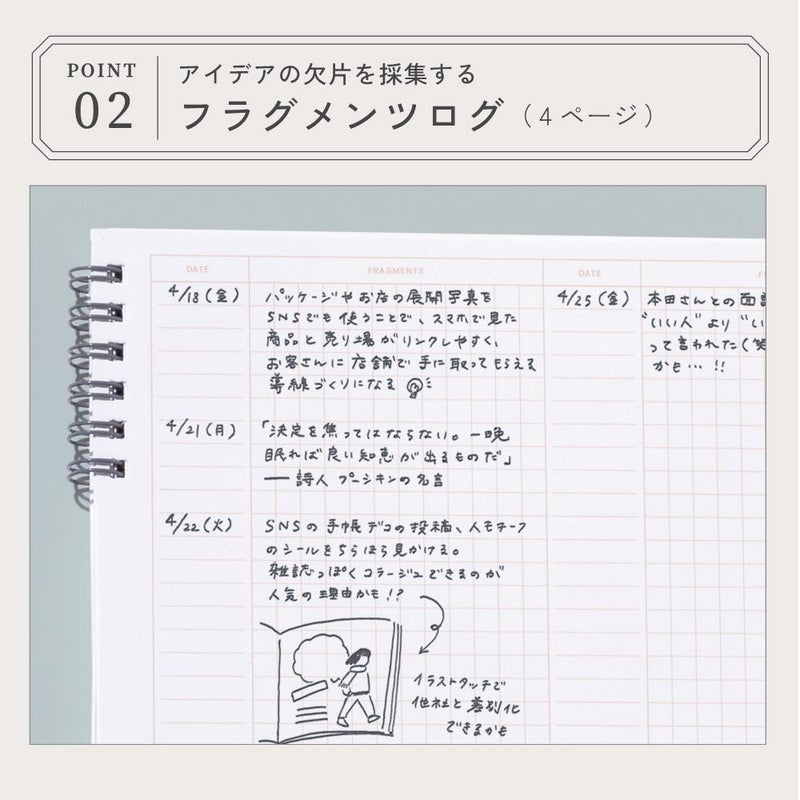 POINT
02
アイデアの欠片を採集する
フラグメンツログ（4ページ）
DATE
FRAGMENTS
4/18（金）
パッケージやお店の展開写真を
SNSでも使うことで、スマホで見た
商品と売り場がリンクしやすく、
お客さんに店舗で手に取ってもらえる
導線づくりになる
4/21（月）
「決定を焦ってはならない。一晩
眠れば良い知恵が出るものだ」
── 詩人 プーシキンの名言
4/22（火）
SNSの手帳デコの投稿、人モチーフ
のシールをちらほら見かける。
雑誌っぽくコラージュできるのが
人気の理由かも!?
イラストタッチで
他社と差別化
できるかも
DATE
4/25（金）
本田さんとの面
"いい人"より"い
って言われた（笑
かも…!!